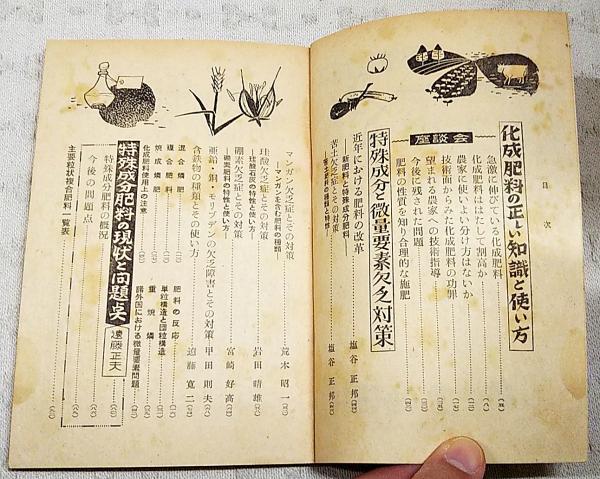 目次
化成肥料の正しい知識と使い方
座談会
急激に伸びている化成肥料
化成肥料ははたして割高か
農家に使いよい分け方はないか
技術面からみた化成肥料の功罪
望まれる農家への技術指導
今後に残された問題
肥料の性質を知り合理的な施肥
特殊成分と微量要素欠乏対策
近年における肥料の改革 塩谷正邦
―新肥料と特殊成分肥料―
苦土欠乏症とその対策 塩谷正邦
―苦土肥料の種類と特性―
マンガン欠乏症とその対策 荒木昭一
―マンガンを含む肥料の種類―
珪酸欠乏症とその対策 岩田晴雄
―珪酸石灰の特性と使い方―
硼素欠乏症とその対策 宮崎好高
―硼素肥料の特性と使い方―
亜鉛・銅・モリブデンの欠乏障害とその対策 甲田則夫
含鉄物の種類とその使い方 遠藤寛二
混合燐肥
複合肥料
焼成燐肥
化成肥料使用上の注意
肥料の反応
単粒構造と団粒構造
重焼燐
諸外国における微量要素問題
特殊成分肥料の現状と問題点 遠藤正夫
特殊成分肥料の概況
今後の問題点
主要粒状複合肥料一覧表